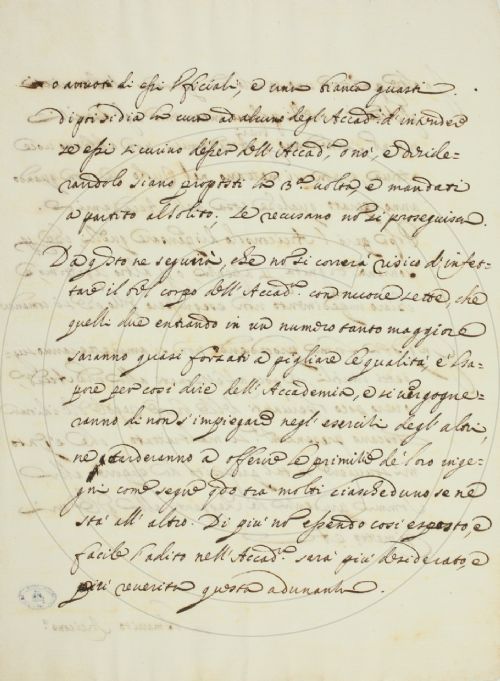 o amori di essi Ufficiali, e una bianca guasti.
Di poi si dia la cura ad alcuno degl'Accad.i d'intendere
se essi si curino d'esser dell'Accad.a, o nò, e deside-
randolo siano proposti la 3.a volta, e mandati
a partito al solito; se recusano non si proseguisca.
Da q.sto ne seguirà, che non si correrà risico d'infet-
tare il bel corpo dell'Accad.a con nuove sette, chè
quelli due entrando in un numero tanto maggiore
saranno quasi forzati a pigliare le qualità, e 'l sa-
pore per così dire dell'Accademia, e si vergogne-
ranno di non s'impiegare negl'esercizi degl'altri,
ne tarderanno a offerire le primitie de' loro inge-
gni come segue q.do trà molti ciascheduno se ne
stà all'altro. Di più non essendo così esposto, e
facile l'adito nell'Accad.a sarà più desiderato, e
più reverita questa adunanza.